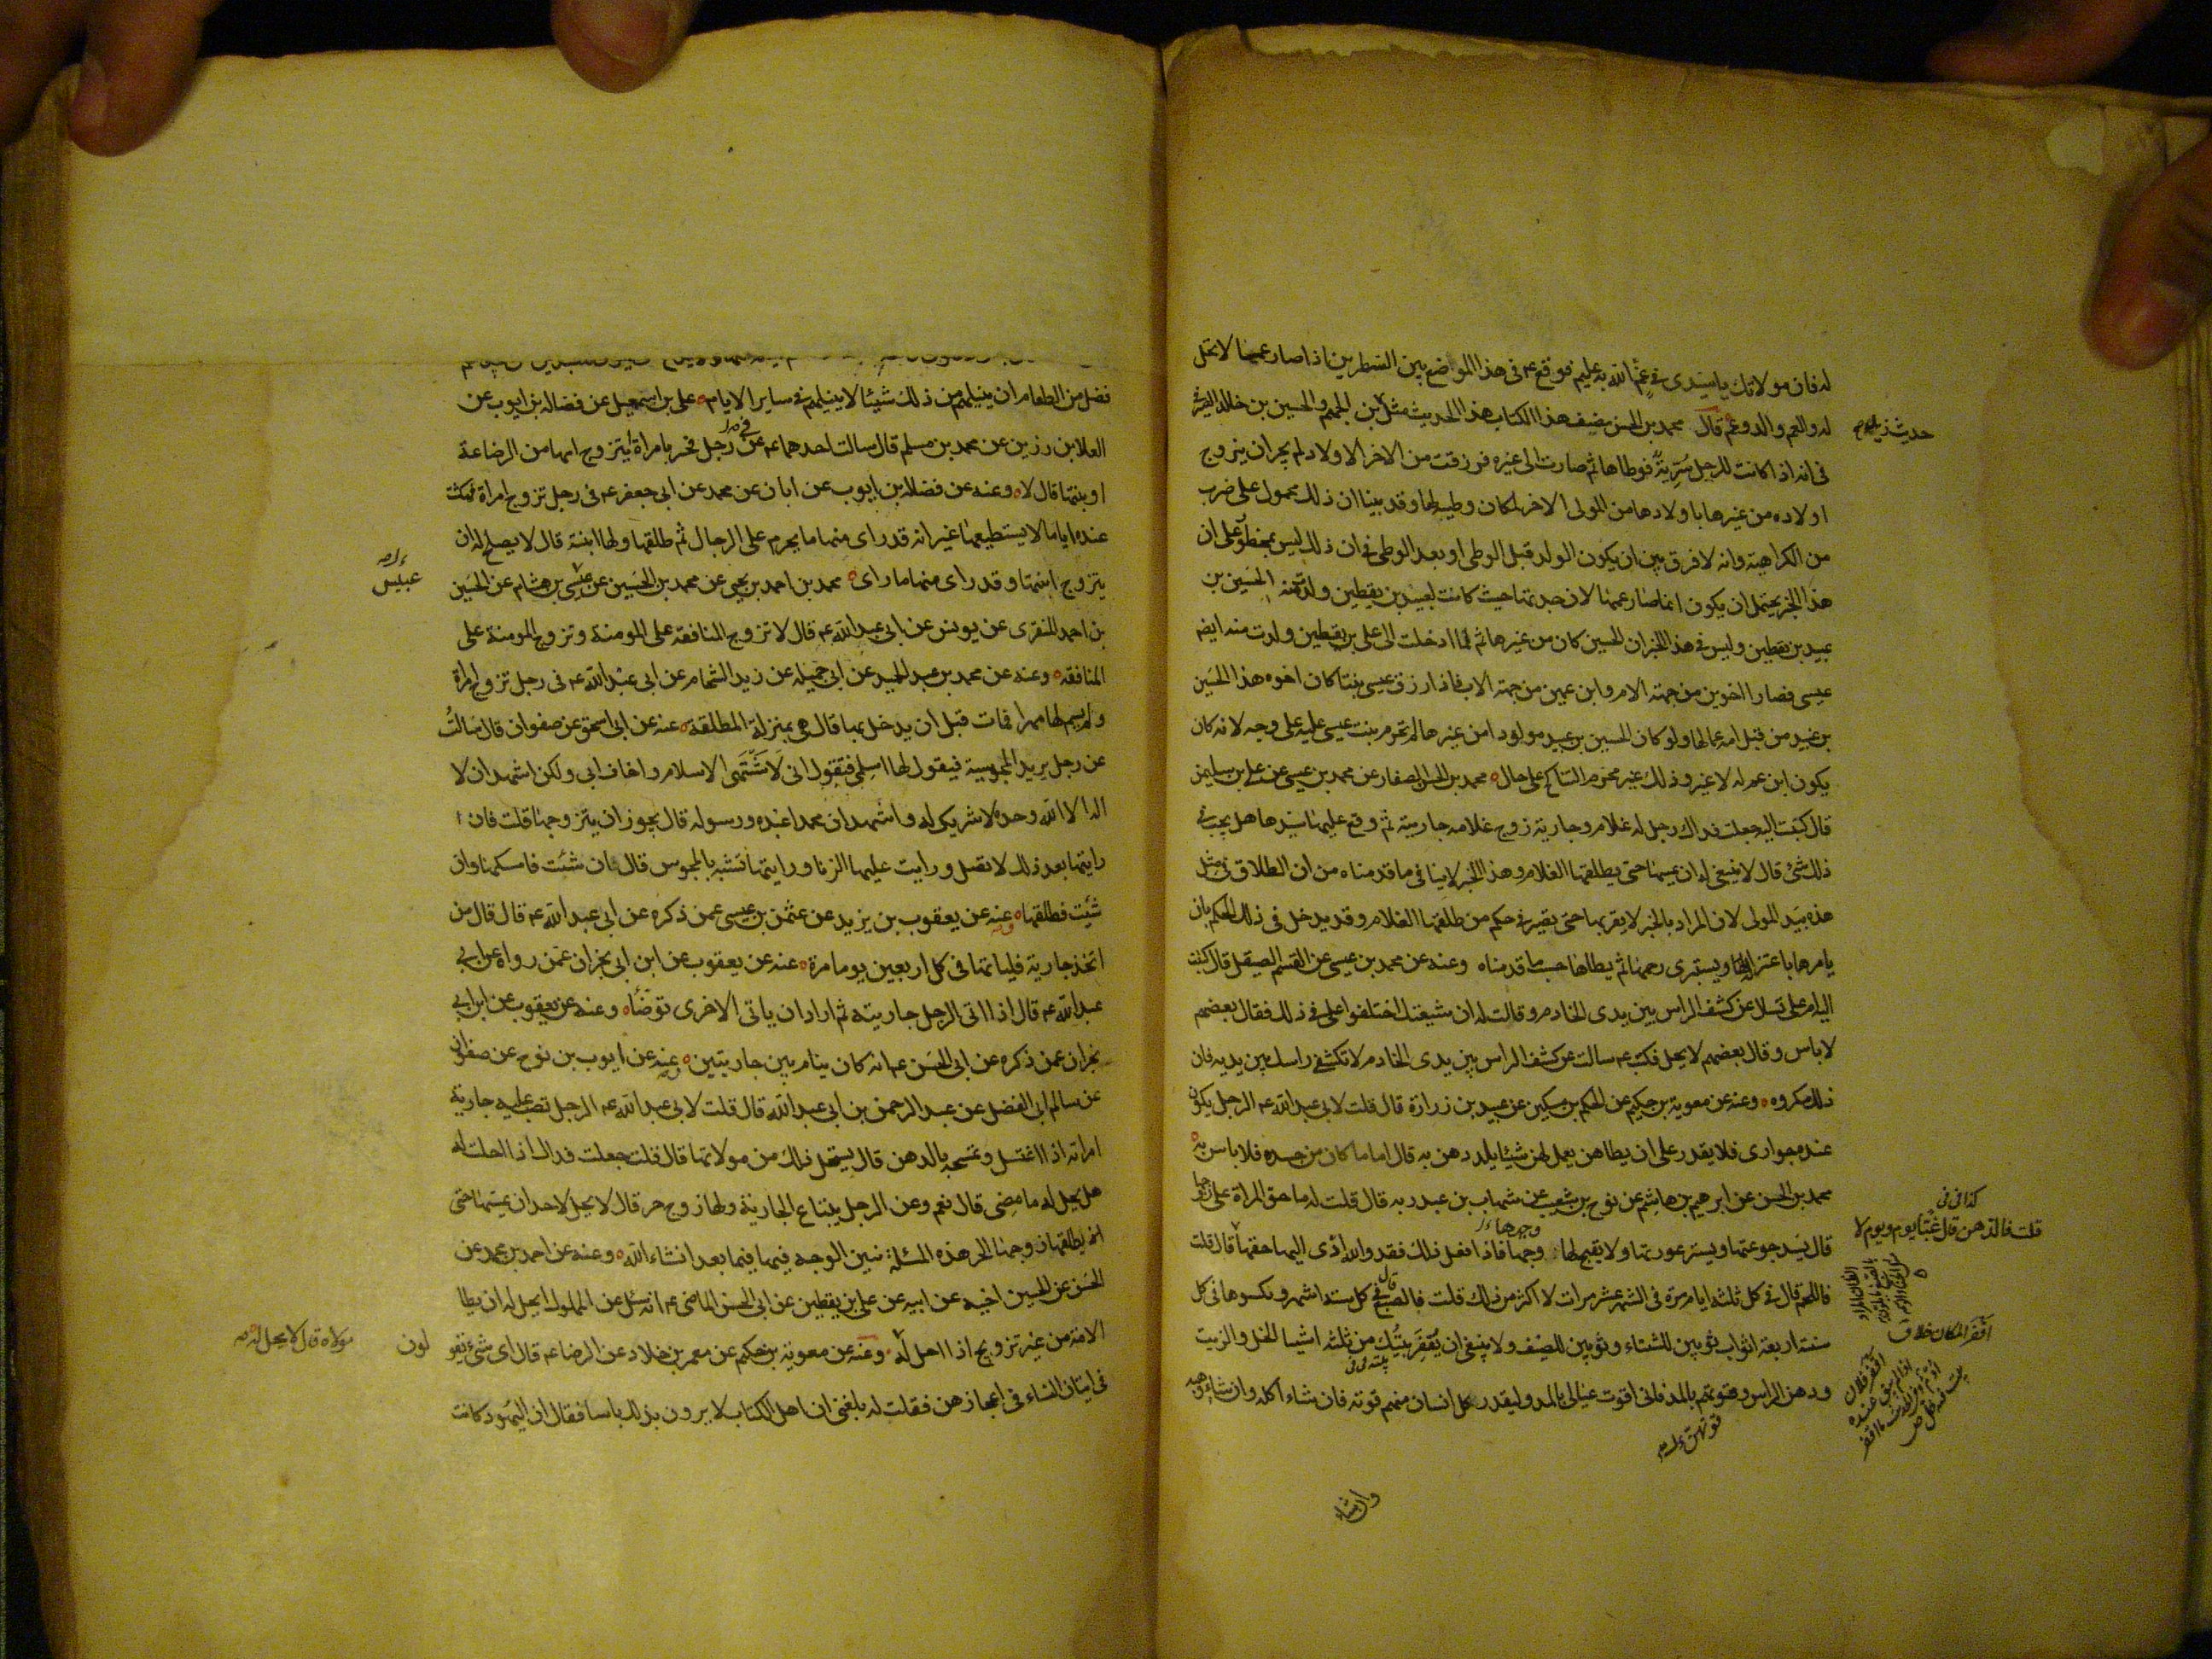 له فان مولاتك يا سيدى فى غم الله به عليم فوقع ع فى هذا الموضع بين السطرين اذا صار عما لا تحل
له والعم والد وعم قال محمد بن الحسن مصنف هذا الكتاب هذا الحديث مثل
فى انه اذا كانت للرجل سرية فوطاها ثم صارت الى غيره فرزقت من الاخر الاولاد لم يجز ان يتزوج
اولاده من غيرها باولادها من المولى الاخر لمكان وطيه لها وقد بينا ان ذلك محمول على ضرب
من الكراهية وانه لا فرق بين ان يكون الولد قبل الوطى او بعد الوطى فى ان ذلك ليس بمحظور على ان
هذا الخبر يحتمل ان يكون انما صار عما لان جدتها حيث كانت لعبيد بن يقطين ولدت منه الحسين بن
عبيد بن يقطين وليس فى هذا الخبر ان الحسين كان من غيرها ثم لما ادخلت الى على بن يقطين ولدت منه ايضا
عيسى فصارا اخوين من جهة الام وابن عمين من جهة الاب فاذا رزق عيسى بنتا كان اخوه هذا الحسين
بن عبيد من قبل امه عما لها ولو كان الحسين بن عبيد مولودا من غيرها لم تحرم بنت عيسى عليه على وجه لانه كان
يكون ابن عم له لا غير وذلك غير محرم التناكح على حال محمد بن الحسن الصفار عن محمد بن عيسى عن على بن سليمن
قال كتبت اليه جعلت فداك رجل له غلام وجارية زوج غلامه جاريته ثم وقع عليها سيدها هل يجب فى
ذلك شئ قال لا ينبغى له ان يمسها حتى يطلقها الغلام وهذا الخبر لا ينافى ما قدمناه من ان الطلاق فى مثل
هذه بيد المولى لان المراد بالخبر لا يقربها حتى يصير فى حكم من طلقها الغلام وقد يدخل فى ذلك الحكم بان
يامرها باعتزاله لها ويستبرى رحمها ثم يطاها حسب ما قدمناه وعنه عن محمد بن عيسى عن القسم الصيقل قال كتبت
اليه ام على تسال عن كشف الراس بين يدى الخادم وقالت له ان شيعتك اختلفوا على فى ذلك فقال بعضهم
لا باس وقال بعضهم لا يحل فكتب ع سالت عن كشف الراس بين يدى الخادم لا تكشفى راسك بين يديه فان
ذلك مكروه وعنه عن معوية بن حكيم عن الحكم بن مسكين عن عبيد بن زرارة قال قلت لابى عبد الله ع الرجل يكون
عنده جوارى فلا يقدر على ان يطاهن يعمل لهن شيئا يلذذهن به قال اما ما كان من جسده فلا باس به
محمد بن الحسن عن ابرهيم بن هاشم عن نوح بن شعيب عن شهاب بن عبد ربه قال قلت له ما حق المراة على زوجها
قال يسد جوعتها ويستر عورتها ولا يقبح لها وجها فاذا فعل ذلك فقد والله ادى اليها حقها قال قلت
فاللحم قال فى كل ثلثة ايام مرة فى الشهر عشر مرات لا اكثر من ذلك قلت فالصبغ قال فى كل ستة اشهر ويكسوها فى كل
سنة اربعة اثواب ثوبين للشتاء وثوبين للصيف ولا ينبغى ان يقفر بيتك من ثلثة اشيا الخل والزيت
ودهن الراس وقوتهم بالمد فانى اقوت عيالى بالمد وليقدر كل انسان منهم قوته فان شاء اكله وان شاء وهبه
كذا فى
قلت فالدهن قال غبا يوم ويوم لا
اقفر المكان خلا ف
وان شاء
فضل من الطعام ان ينيلهم من ذلك شيئا لا ينيلهم فى ساير الايام على بن اسمعيل عن فضاله بن ايوب عن
العلا بن رزين عن محمد بن مسلم قال سالت احدهما ع عن رجل فجر بامراة ايتزوج امها من الرضاعة
او بنتها قال لا وعنه عن فضالة بن ايوب عن ابان عن محمد عن ابى جعفر ع فى رجل تزوج امراة فمكث
عنده اياما لا يستطيعها غير انه قد راى منها ما يحرم على الرجال ثم طلقها ولها ابنة قال لا يصلح له ان
يتزوج ابنتها وقد راى منها ما راى محمد بن احمد بن يحيى عن محمد بن الحسين عن عيسى بن هشام عن الحسين
بن احمد المنقرى عن يونس عن ابى عبد الله ع قال لا تزوج المنافقة على المومنة وتزوج المومنة على
المنافقه وعنه عن محمد بن عبد الحميد عن ابى جميله عن زيد الشحام عن ابى عبد الله ع فى رجل تزوج امراة
ولم يسم لها مهرا فمات قبل ان يدخل بها قال هى بمنزلة المطلقة عنه عن ابى اسحق عن صفوان قال سالت
عن رجل يريد المجوسية فيقول لها اسلمى فتقول انى لاشتهى الاسلام واخاف ابى ولكن اشهد ان لا
اله الا الله وحده لا شريك له واشهد ان محمدا عبده ورسوله قال يجوز ان يتزوجها قلت فان
رايتها بعد ذلك لا تصلى ورايت عليها الزنا ورايتها تشبه بالمجوس قال فان شئت فامسكها وان
شئت فطلقها عنه عن يعقوب بن يزيد عن عثمن بن عيسى عمن ذكره عن ابى عبد الله ع قال قال من
اتخذ جارية فلياتها فى كل اربعين يوما مرة عنه عن يعقوب عن ابن ابى نجران عمن رواه عن ابى
عبد الله ع قال اذا اتى الرجل جاريته ثم اراد ان ياتى الاخرى توضاه وعنه عن يعقوب عن ابن ابى
نجران عمن ذكره عن ابى الحسن ع انه كان ينام بين جاريتين وعنه عن ايوب بن نوح عن صفوان
عن سالم ابى الفضل عن عبد الرحمن بن ابى عبد الله قال قلت لابى عبد الله ع الرجل تصب عليه جارية
امراته اذا اغتسل وتمسحه بالدهن قال يستحل ذلك من مولاتها قال قلت جعلت فداك اذا احلت له
هل يحل له ما مضى قال نعم وعن الرجل يبتاع الجارية ولها زوج حر قال لا يحل لاحد ان يمسها حتى
يطلقها زوجها الحر هذه المسئلة نبين الوجه فيها فيما بعد انشاء الله وعنه عن احمد بن محمد عن
الحسن عن الحسين اخيه عن ابيه عن على بن يقطين عن ابى الحسن الماضى ع انه سئل عن المملوك ايحل له ان يطا
الامة من غير تزويج اذا احل له وعنه عن معوية بن حكيم عن معمر بن خلاد عن الرضا ع قال اى شئ يقو لون
فى اتيان النساء فى اعجازهن فقلت له بلغنى ان اهل الكتاب لا يرون بذلك باسا فقال ان اليهود كانت
عبيس
مولاه قال لا يحل له